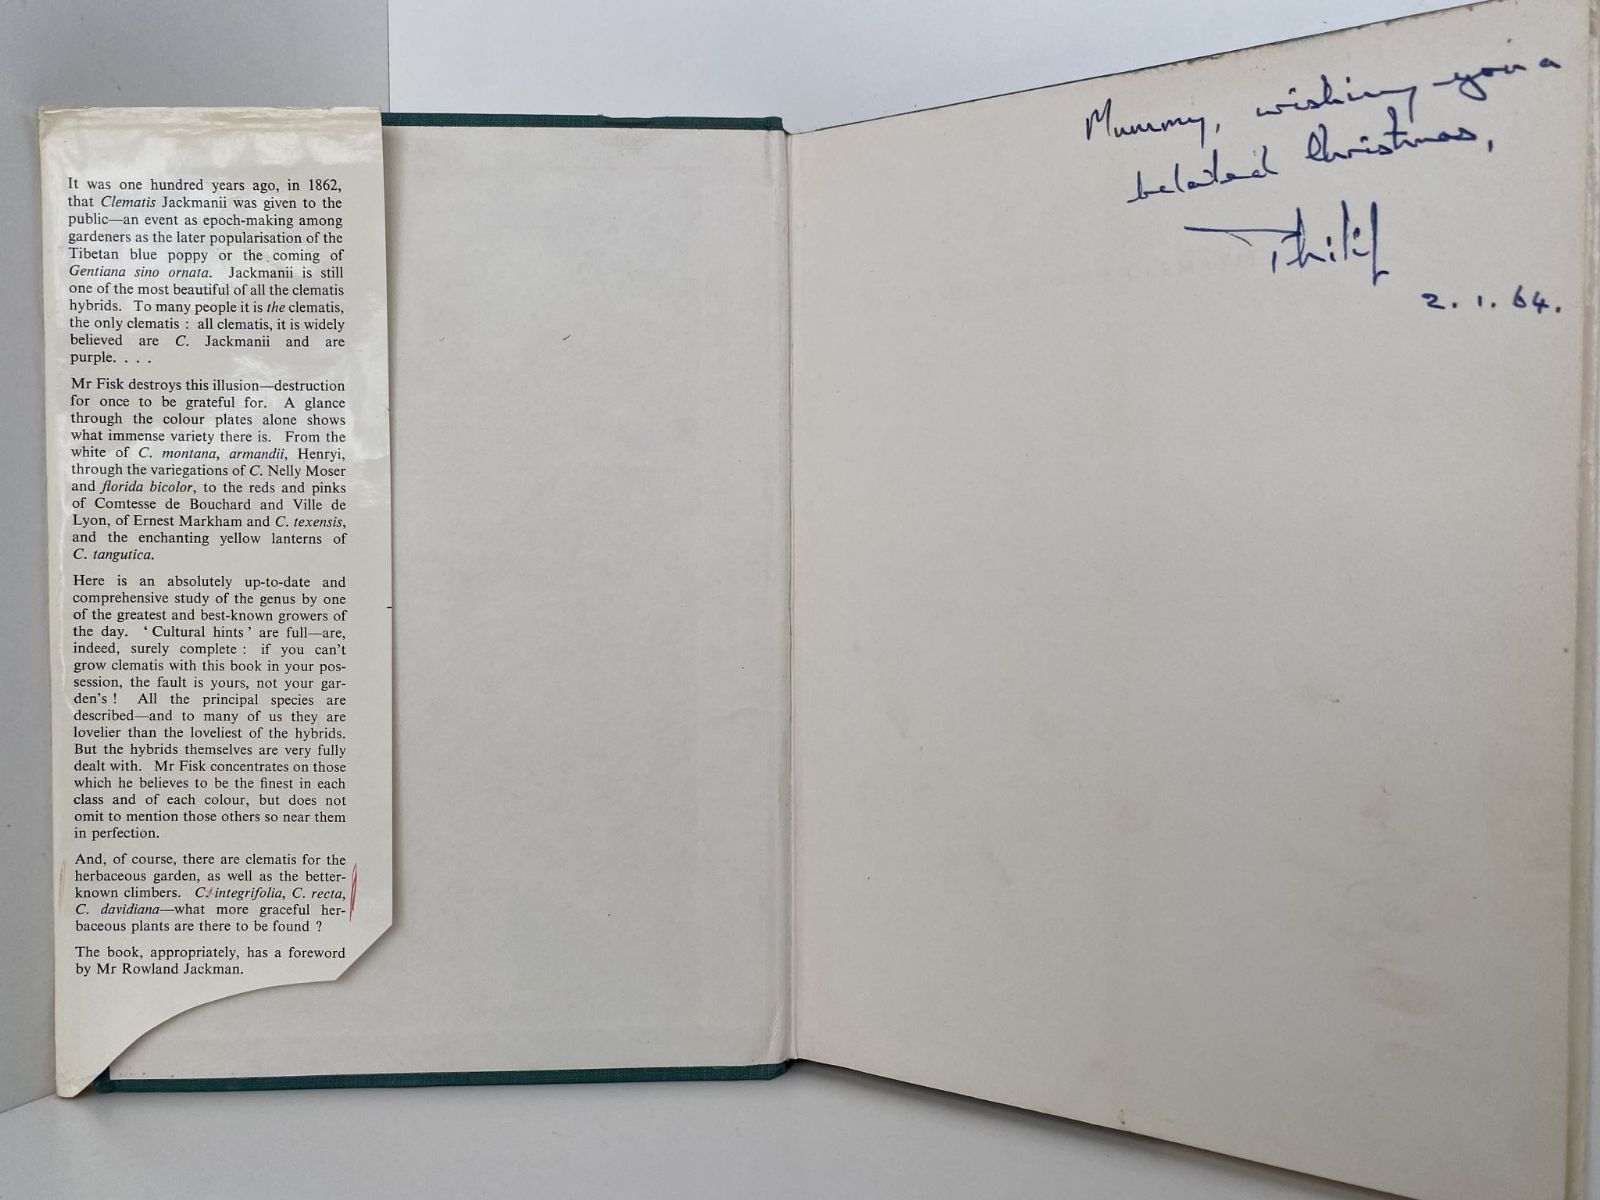 It was one hundred years ago, in 1862,
that Clematis Jackmanii was given to the
public—an event as epoch-making among
gardeners as the later popularisation of the
Tibetan blue poppy or the coming of
Gentiana sino ornata. Jackmanii is still
one of the most beautiful of all the clematis
hybrids. To many people it is the clematis,
the only clematis : all clematis, it is widely
believed are C. Jackmanii and are
purple. . . .
Mr Fisk destroys this illusion—destruction
for once to be grateful for. A glance
through the colour plates alone shows
what immense variety there is. From the
white of C. montana, armandii, Henryi,
through the variegations of C. Nelly Moser
and florida bicolor, to the reds and pinks
of Comtesse de Bouchard and Ville de
Lyon, of Ernest Markham and C. texensis,
and the enchanting yellow lanterns of
C. tangutica.
Here is an absolutely up-to-date and
comprehensive study of the genus by one
of the greatest and best-known growers of
the day. ‘ Cultural hints ’ are full—are,
indeed, surely complete : if you can’t
grow clematis with this book in your pos-
session, the fault is yours, not your gar-
den’s ! All the principal species are
described—and to many of us they are
lovelier than the loveliest of the hybrids.
But the hybrids themselves are very fully
dealt with. Mr Fisk concentrates on those
which he believes to be the finest in each
class and of each colour, but does not
omit to mention those others so near them
in perfection.
And, of course, there are clematis for the
herbaceous garden, as well as the better-
known climbers. C. integrifolia, C. recta,
C. davidiana—what more graceful her-
baceous plants are there to be found ?
The book, appropriately, has a foreword
by Mr Rowland Jackman.
Mummy, wishing you a
belated Christmas,
Philip
2. 1. 64.